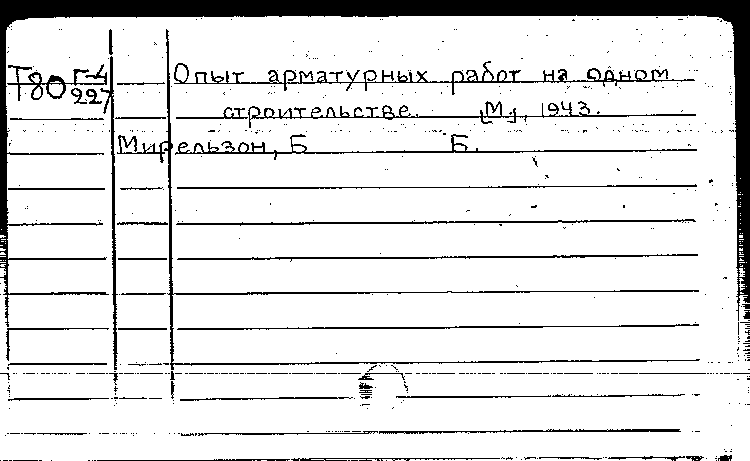 Т80 Г-4 Опыт арматурных работ на одном
227 строительстве. [М.], 1943.
Мирельзон, Б Б.